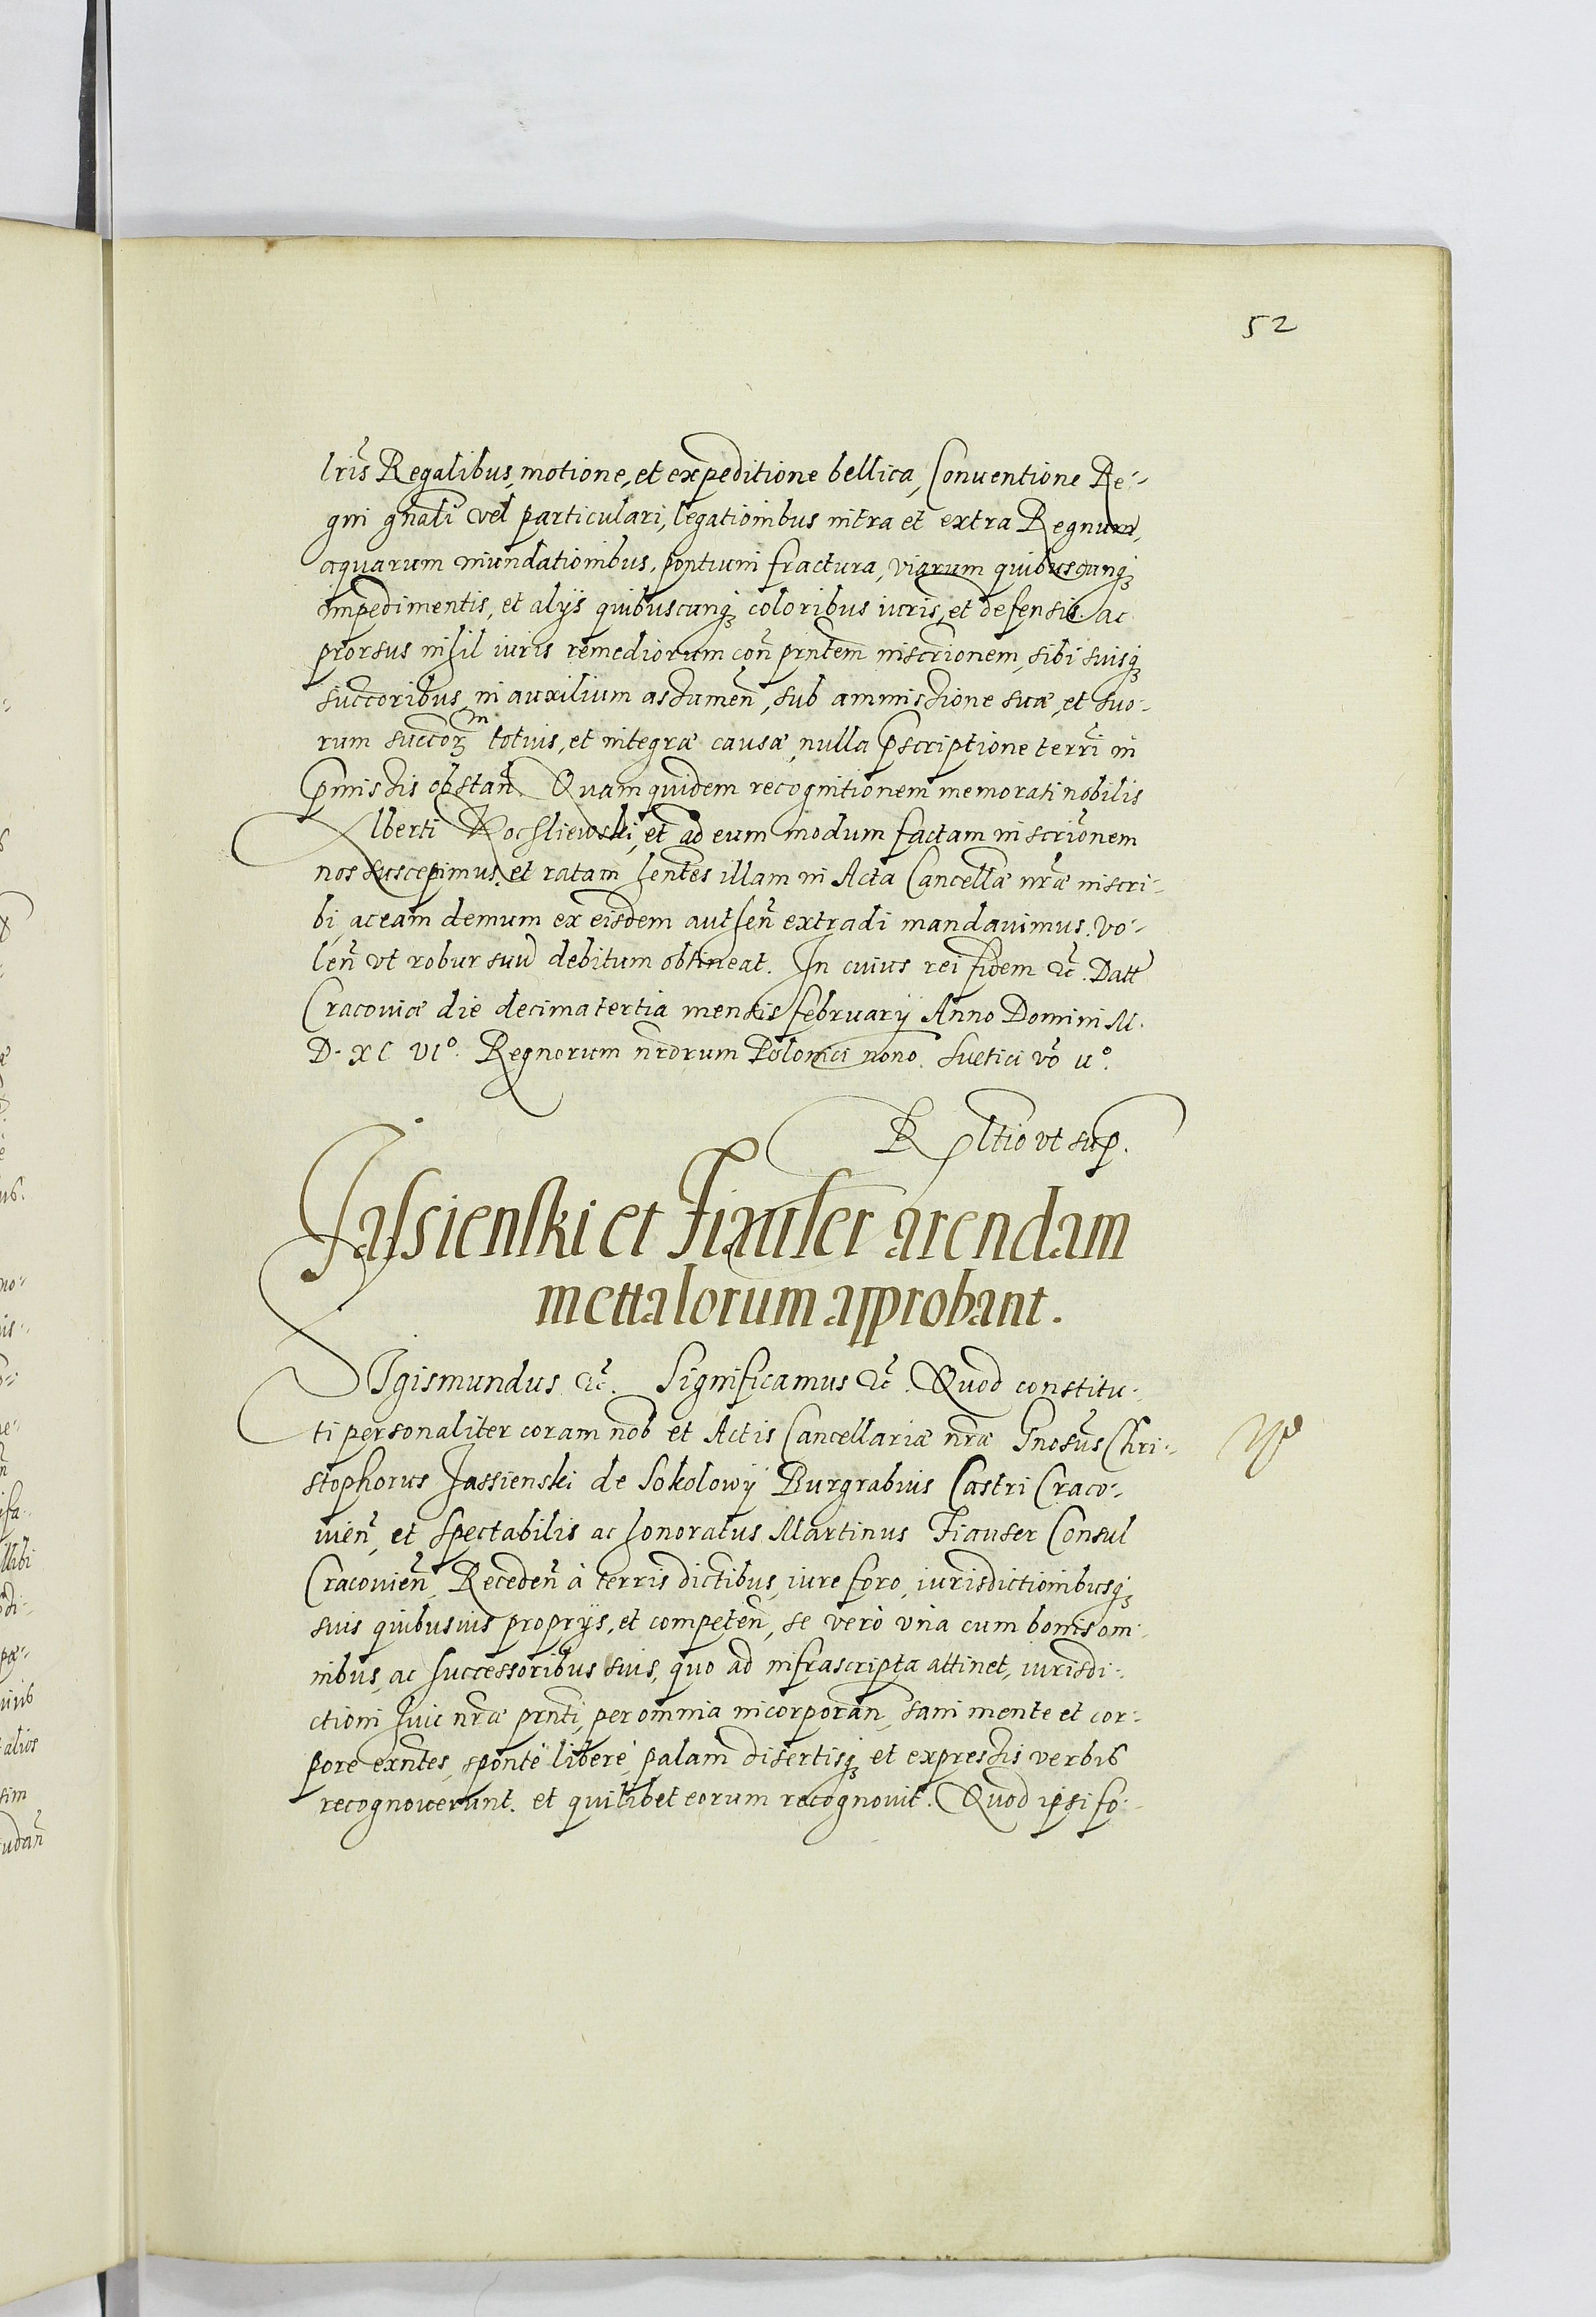 52
lris̃ Regalibus, motione, et expeditione bellica, Conuentione Re-
gni gnãli vel particulari, legationibus intra et extra Regnum,
aquarum inundationibus, pontium fractura, viarum quibuscunq́ꝫ
impedimentis, et alijs quibuscunq́ꝫ coloribus iuris, et defensis. ac
prorsus nihil iuris remediorum coñ prntẽm inscriõnem, sibi suisq́ꝫ
succõribus, in auxilium assumeñ, sub ammissione suæ, et suo-
rum succõꝝ totius, et integræ causæ, nulla p̃scriptione terrĩ in
p̃missis obstañ. Quam quidem recognitionem memorati nobilis
Alberti Kochliewski, et ad eum modum factam inscriõnem
nos suscepimus, et ratam hentẽs illam in Acta Cancellæ̃ nrã̃æ inscri-
bi, ac eam demum ex eisdem autheñ extradi mandauimus. Vo-
leñ vt robur suũ debitum obtineat. In cuius rei fidem ꝛc̃. Datt
Cracouiæ die decima tertia mensis february Anno Domini M.
D. XC VI°. Regnorum nrõrum Polonici nono. Suetici võ ii°.
Rltio vt sup.
Jassienski et Fiauser arendam
mettalorum approbant.
SIgismundus ꝛc̃. Significamus ꝛc̃. Quod constitu-
ti personaliter coram nob̃ et Actis Cancellariæ nrãæ Gnosũs Chri-
stophorus Jassienski de Sokolowy Burgrabius Castri Craco-
uieñ, et Spectabilis ac honoratus Martinus Fiauser Consul
Cracouieñ, Recedeñ à terris dictibus, iure foro, iurisdictionibusq́ꝫ
suis quibusuis proprijs, et competeñ, se verò vna cum bonis om-
nibus, ac successoribus suis, quo ad infrascripta attinet, iurisdi-
ctioni huic nrãæ prntĩ, per omnia incorporañ, sani mente et cor-
pore exntẽs, sponte libere, palam disertisq́ꝫ et expressis verbis
recognouerunt. et quilibet eorum recognouit. Quod ipsi fo-